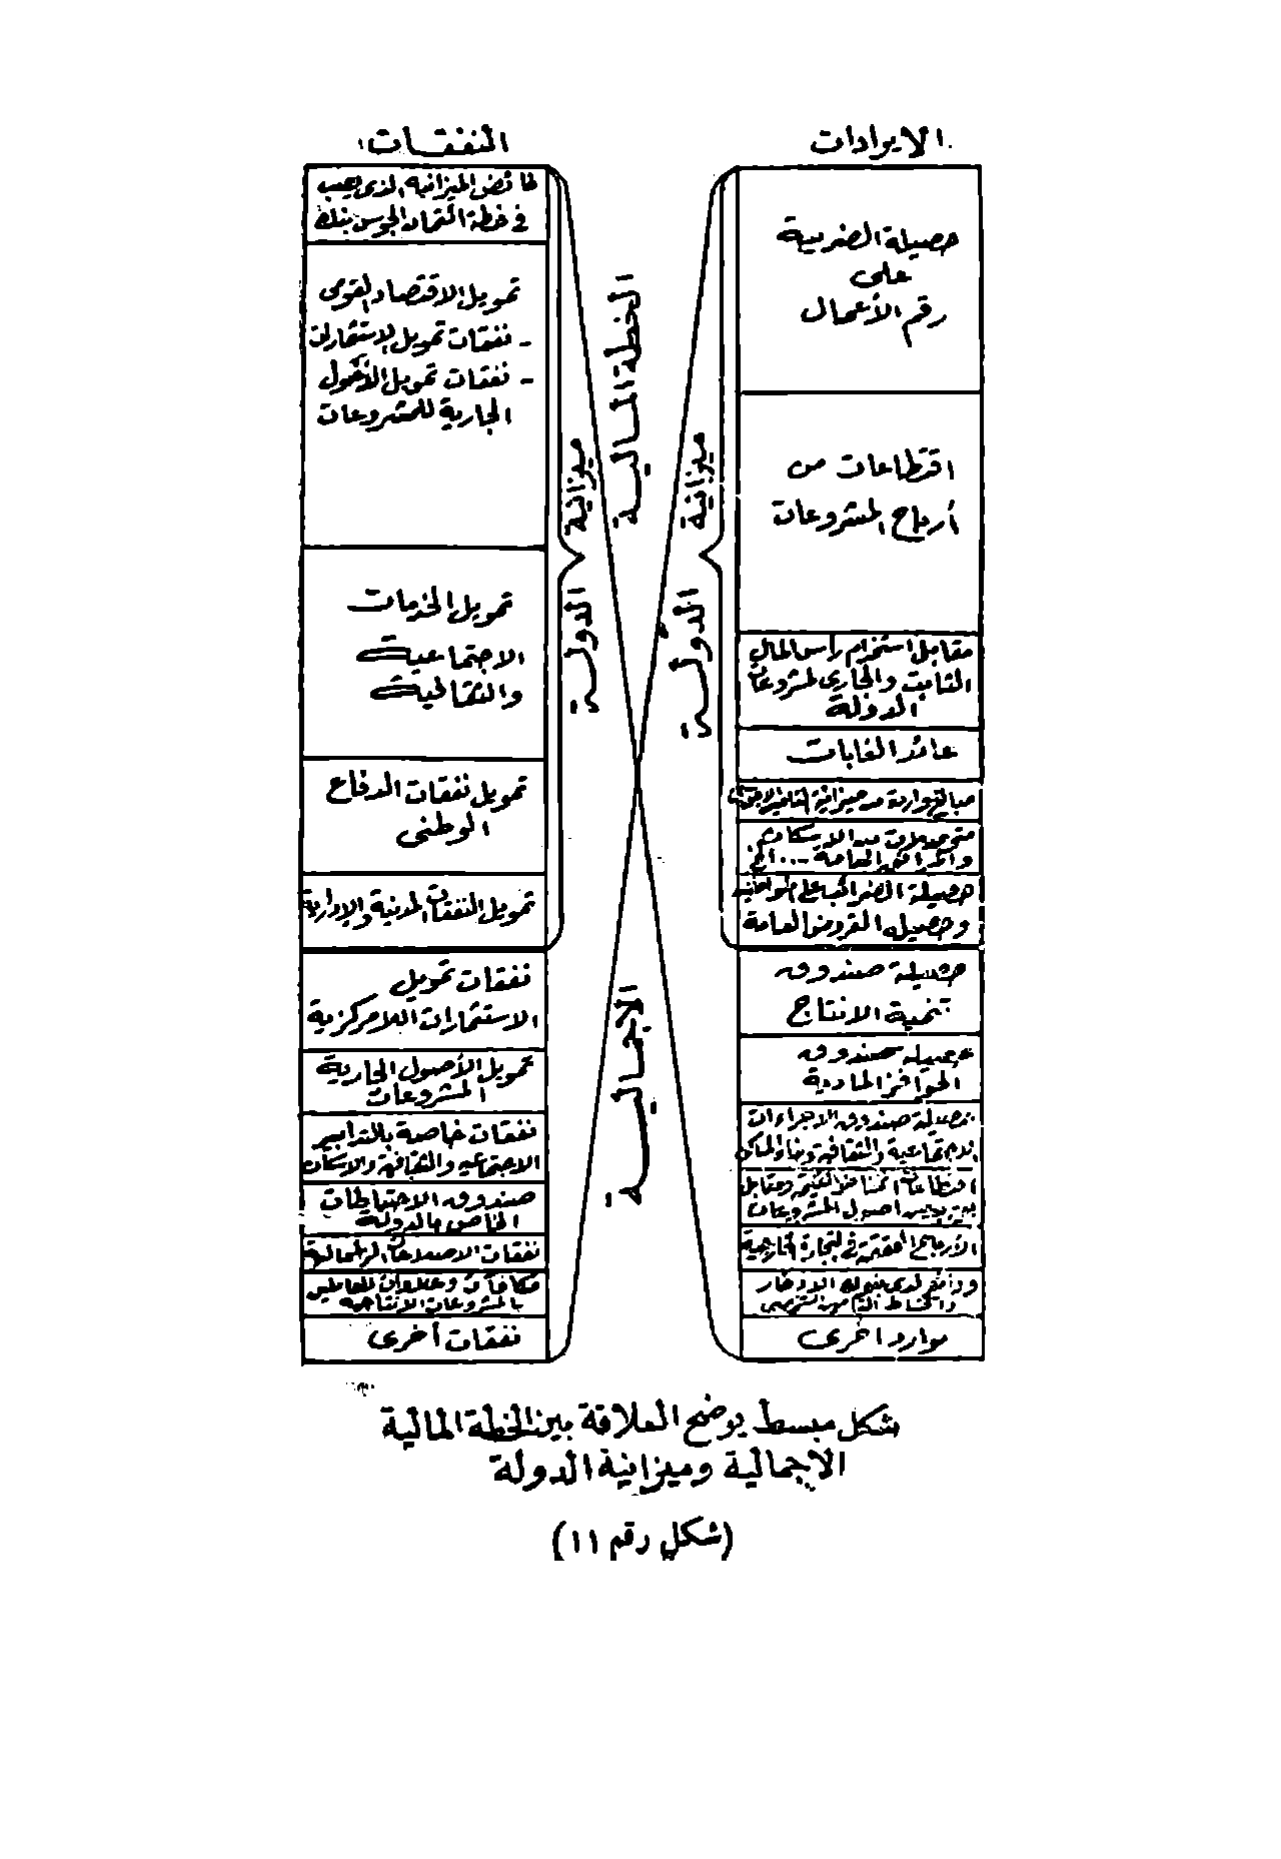 الايرادات
حصيلة الضريبة
على
رقم الأعمال
اقتطاعات من
أرباح المشروعات
مقابل استخدام رأس المال
الثابت والجارى لمشروعات
الدولة
عائد الغابات
مبالغ واردة من ميزانية
متحصلات من الاسكان
والمرافق العامة ... الخ
حصيلة الضرائب على المواطنين
وحصيلة القروض العامة
حصيلة صندوق
تنمية الانتاج
حصيلة صندوق
الحوافز المادية
حصيلة صندوق الاجراءات
الاجتماعية والثقافية وبناء المساكن
أصول المشروعات
الأرباح المحققة فى التجارة الخارجية
ودائع لدى بنوك الادخار
موارد اخرى
ميزانية
الدولة
الخطة المالية
الإجمالية
ميزانية
الدولة
النفقات
فائض الميزانية الذى يصب
فى خطة ائتمان
تمويل الاقتصاد القومى
- نفقات تمويل الاستثمارات
- نفقات تمويل الأصول
الجارية للمشروعات
تمويل الخدمات
الاجتماعية
والثقافية
تمويل نفقات الدفاع
الوطنى
تمويل النفقات المدنية والإدارية
نفقات تمويل
الاستثمارات اللامركزية
تمويل الأصول الجارية
المشروعات
نفقات خاصة بالتدابير
الاجتماعيه والثقافية والاسكان
صندوق الاحتياطات
الخاص بالدولة
نفقات الاصلاحات الرأسمالية
مكافآت وعلاوات للعاملين
بالمشروعات الانتاجية
نفقات أخرى
شكل مبسط يوضح العلاقة بين الخطة المالية
الإجمالية وميزانية الدولة
(شكل رقم ١١)